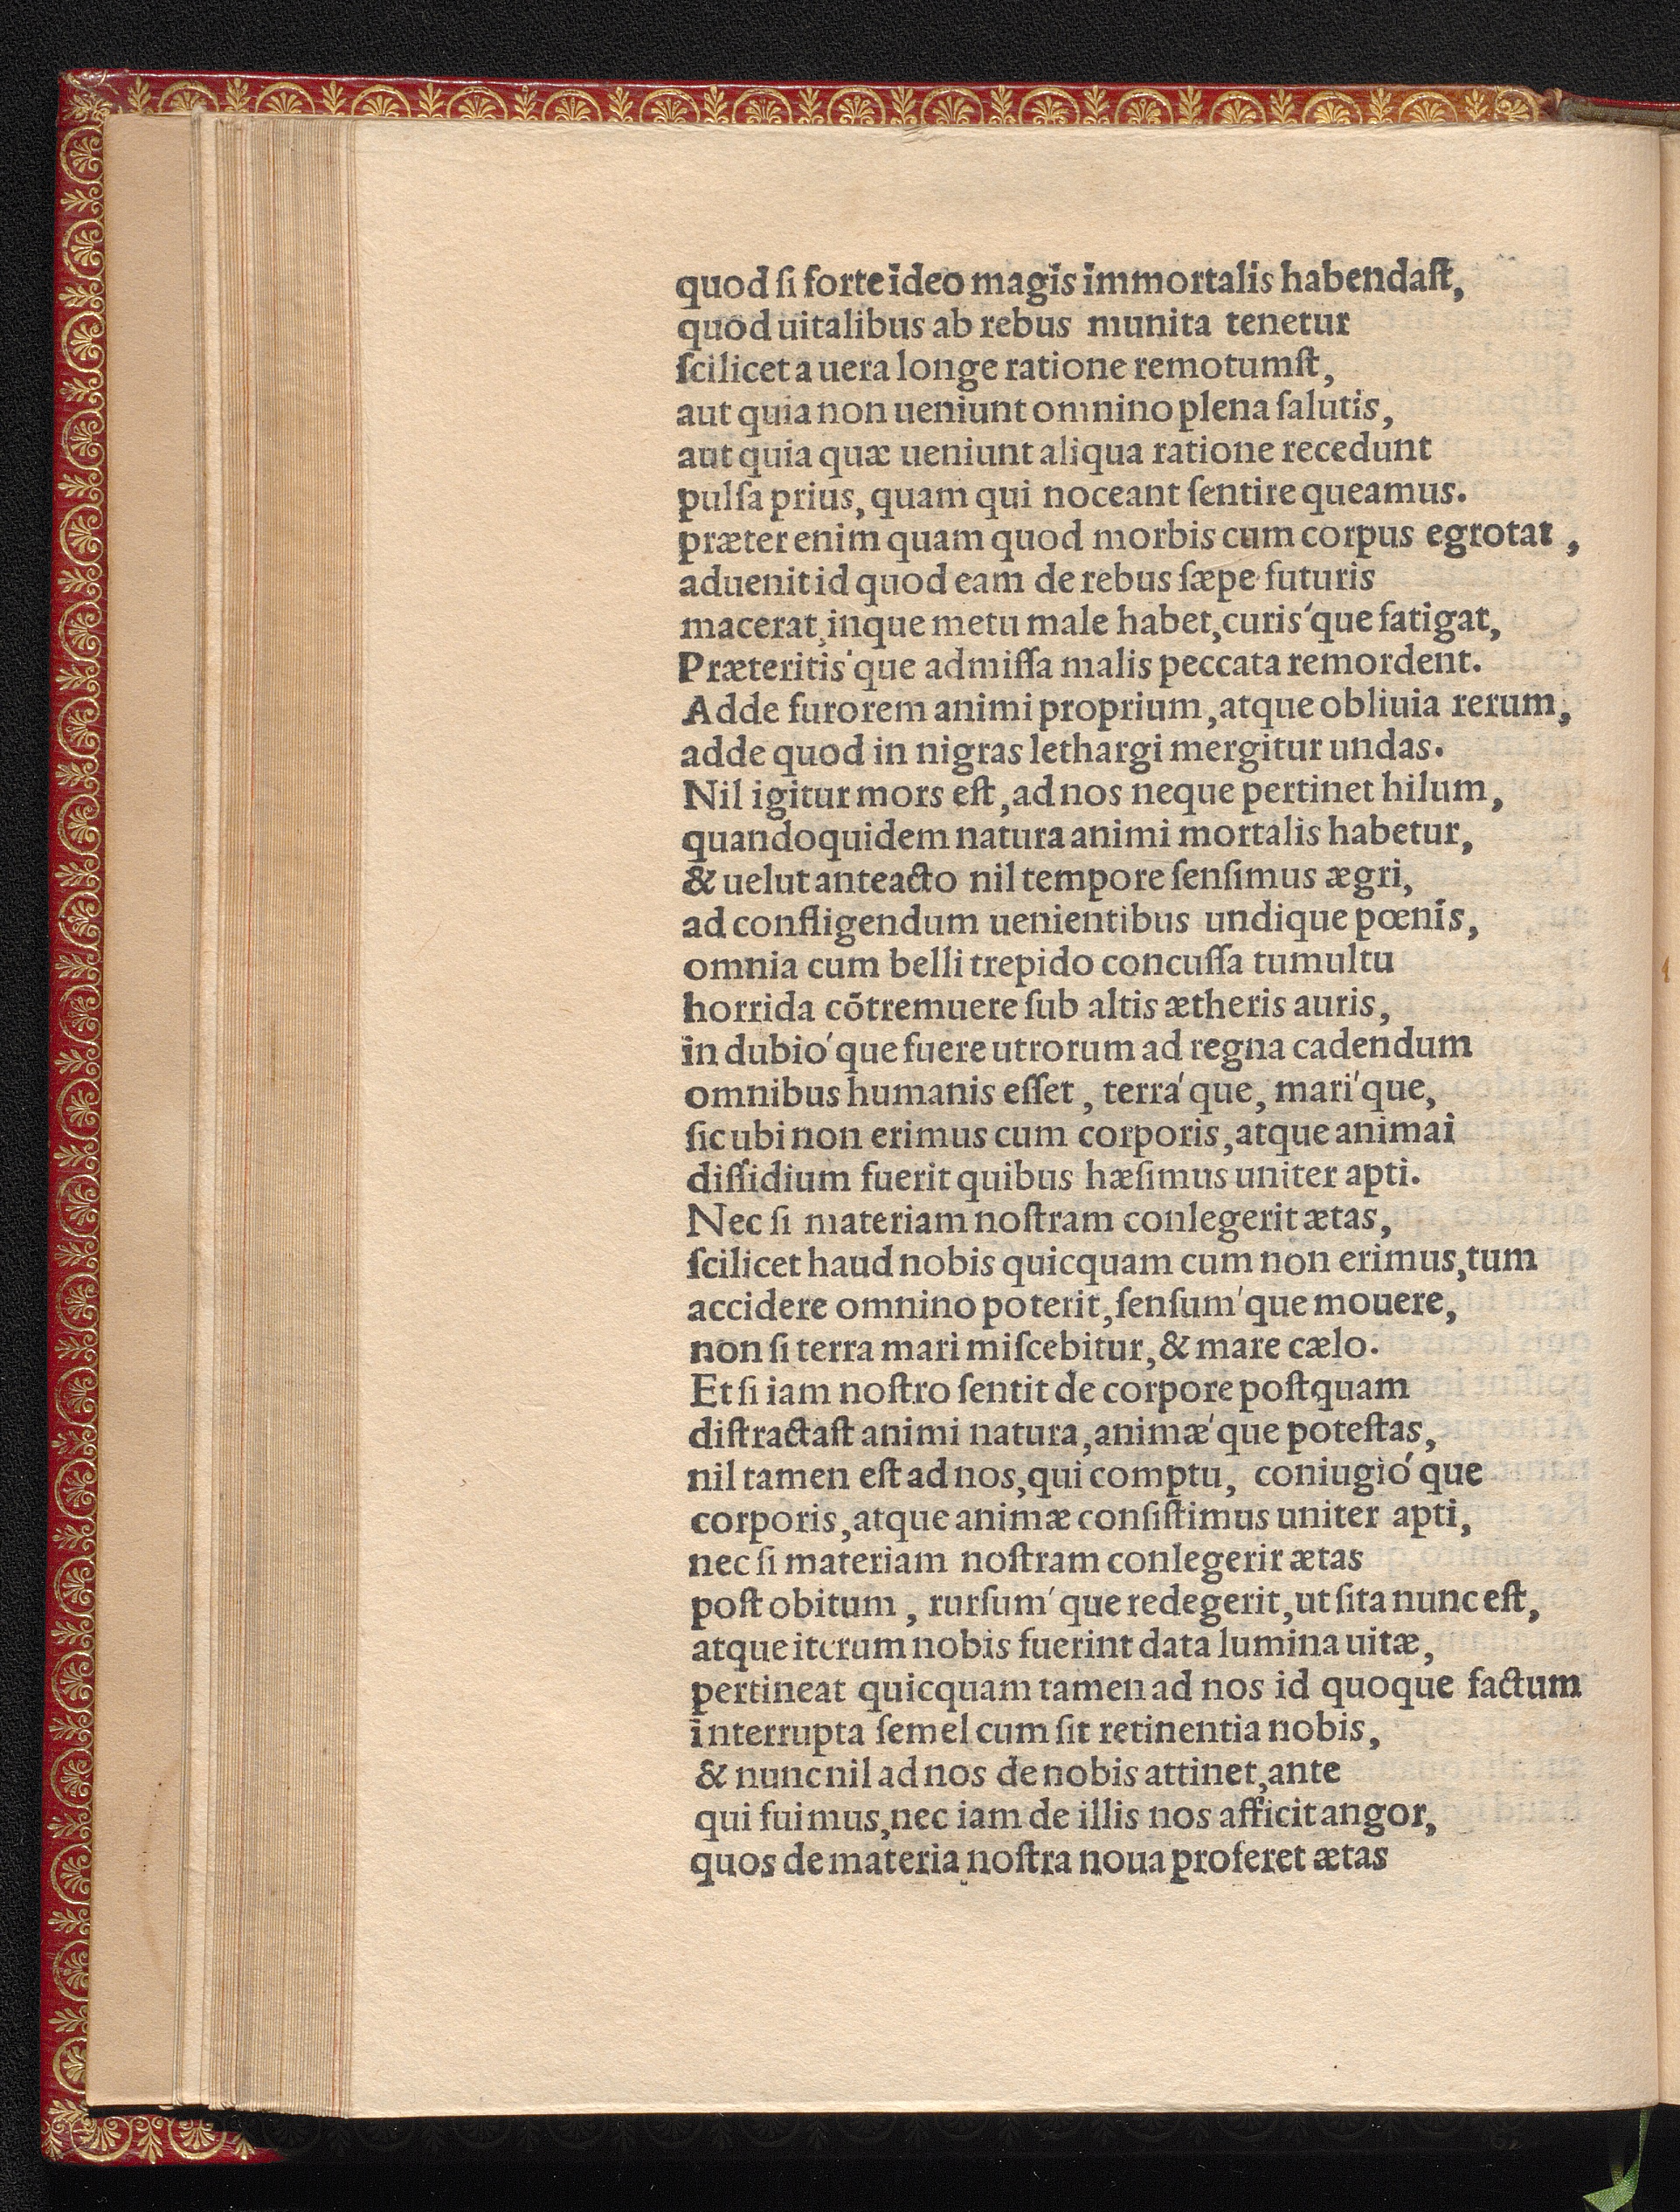 quod ſi forte ideo magis immortalis habendaſt,
quod uitalibus ab rebus munita tenetur
ſcilicet a uera longe ratione remotumſt,
aut quia non ueniunt omnino plena ſalutis,
aut quia quæ ueniunt aliqua ratione recedunt
pulſa prius, quam qui noceant ſentire queamus.
præter enim quam quod morbis cum corpus egrotat,
aduenit id quod eam de rebus ſæpe futuris
macerat, inque metu male habet, curis'que fatigat,
Præteritis'que admiſſa malis peccata remordent.
Adde furorem animi proprium, atque obliuia rerum,
adde quod in nigras lethargi mergitur undas.
Nil igitur mors eſt, ad nos neque pertinet hilum,
quandoquidem natura animi mortalis habetur,
& uelut anteacto nil tempore ſenſimus ægri,
ad confligendum uenientibus undique pœnis,
omnia cum belli trepido concuſſa tumultu
horrida cõtremuere ſub altis ætheris auris,
in dubio'que fuere utrorum ad regna cadendum
omnibus humanis eſſet, terra'que, mari'que,
ſic ubi non erimus cum corporis, atque animai
diſſidium fuerit quibus hæſimus uniter apti.
Nec ſi materiam noſtram conlegerit ætas,
ſcilicet haud nobis quicquam cum non erimus, tum
accidere omnino poterit, ſenſum'que mouere,
non ſi terra mari miſcebitur, & mare cælo.
Et ſi iam noſtro ſentit de corpore poſtquam
diſtractaſt animi natura, animæ'que poteſtas,
nil tamen eſt ad nos, qui comptu, coniugio'que
corporis, atque animæ conſiſtimus uniter apti,
nec ſi materiam noſtram conlegerir ætas
poſt obitum, rurſum'que redegerit, ut ſita nunc eſt,
atque iterum nobis fuerint data lumina uitæ,
pertineat quicquam tamen ad nos id quoque factum
interrupta ſemel cum ſit retinentia nobis,
& nunc nil ad nos de nobis attinet, ante
qui fuimus, nec iam de illis nos afficit angor,
quos de materia noſtra noua proferet ætas